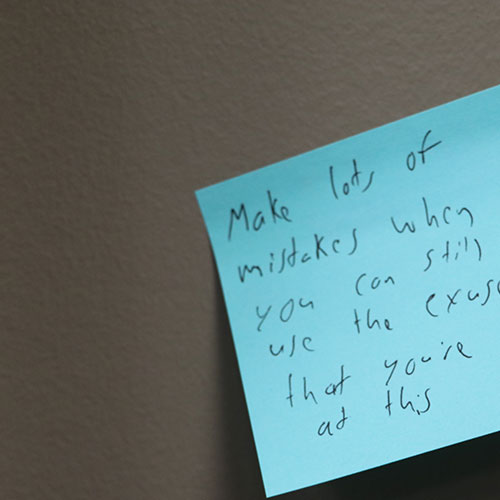 Make lots of
mistakes when
you can still
use the exus
that you're
at this